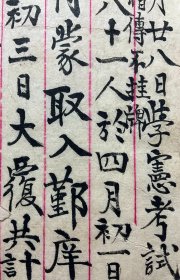 月廿八日學憲考試
傳不挂牌
八十一人於四月初一日
蒙取入鄞庠
初三日大覆共計